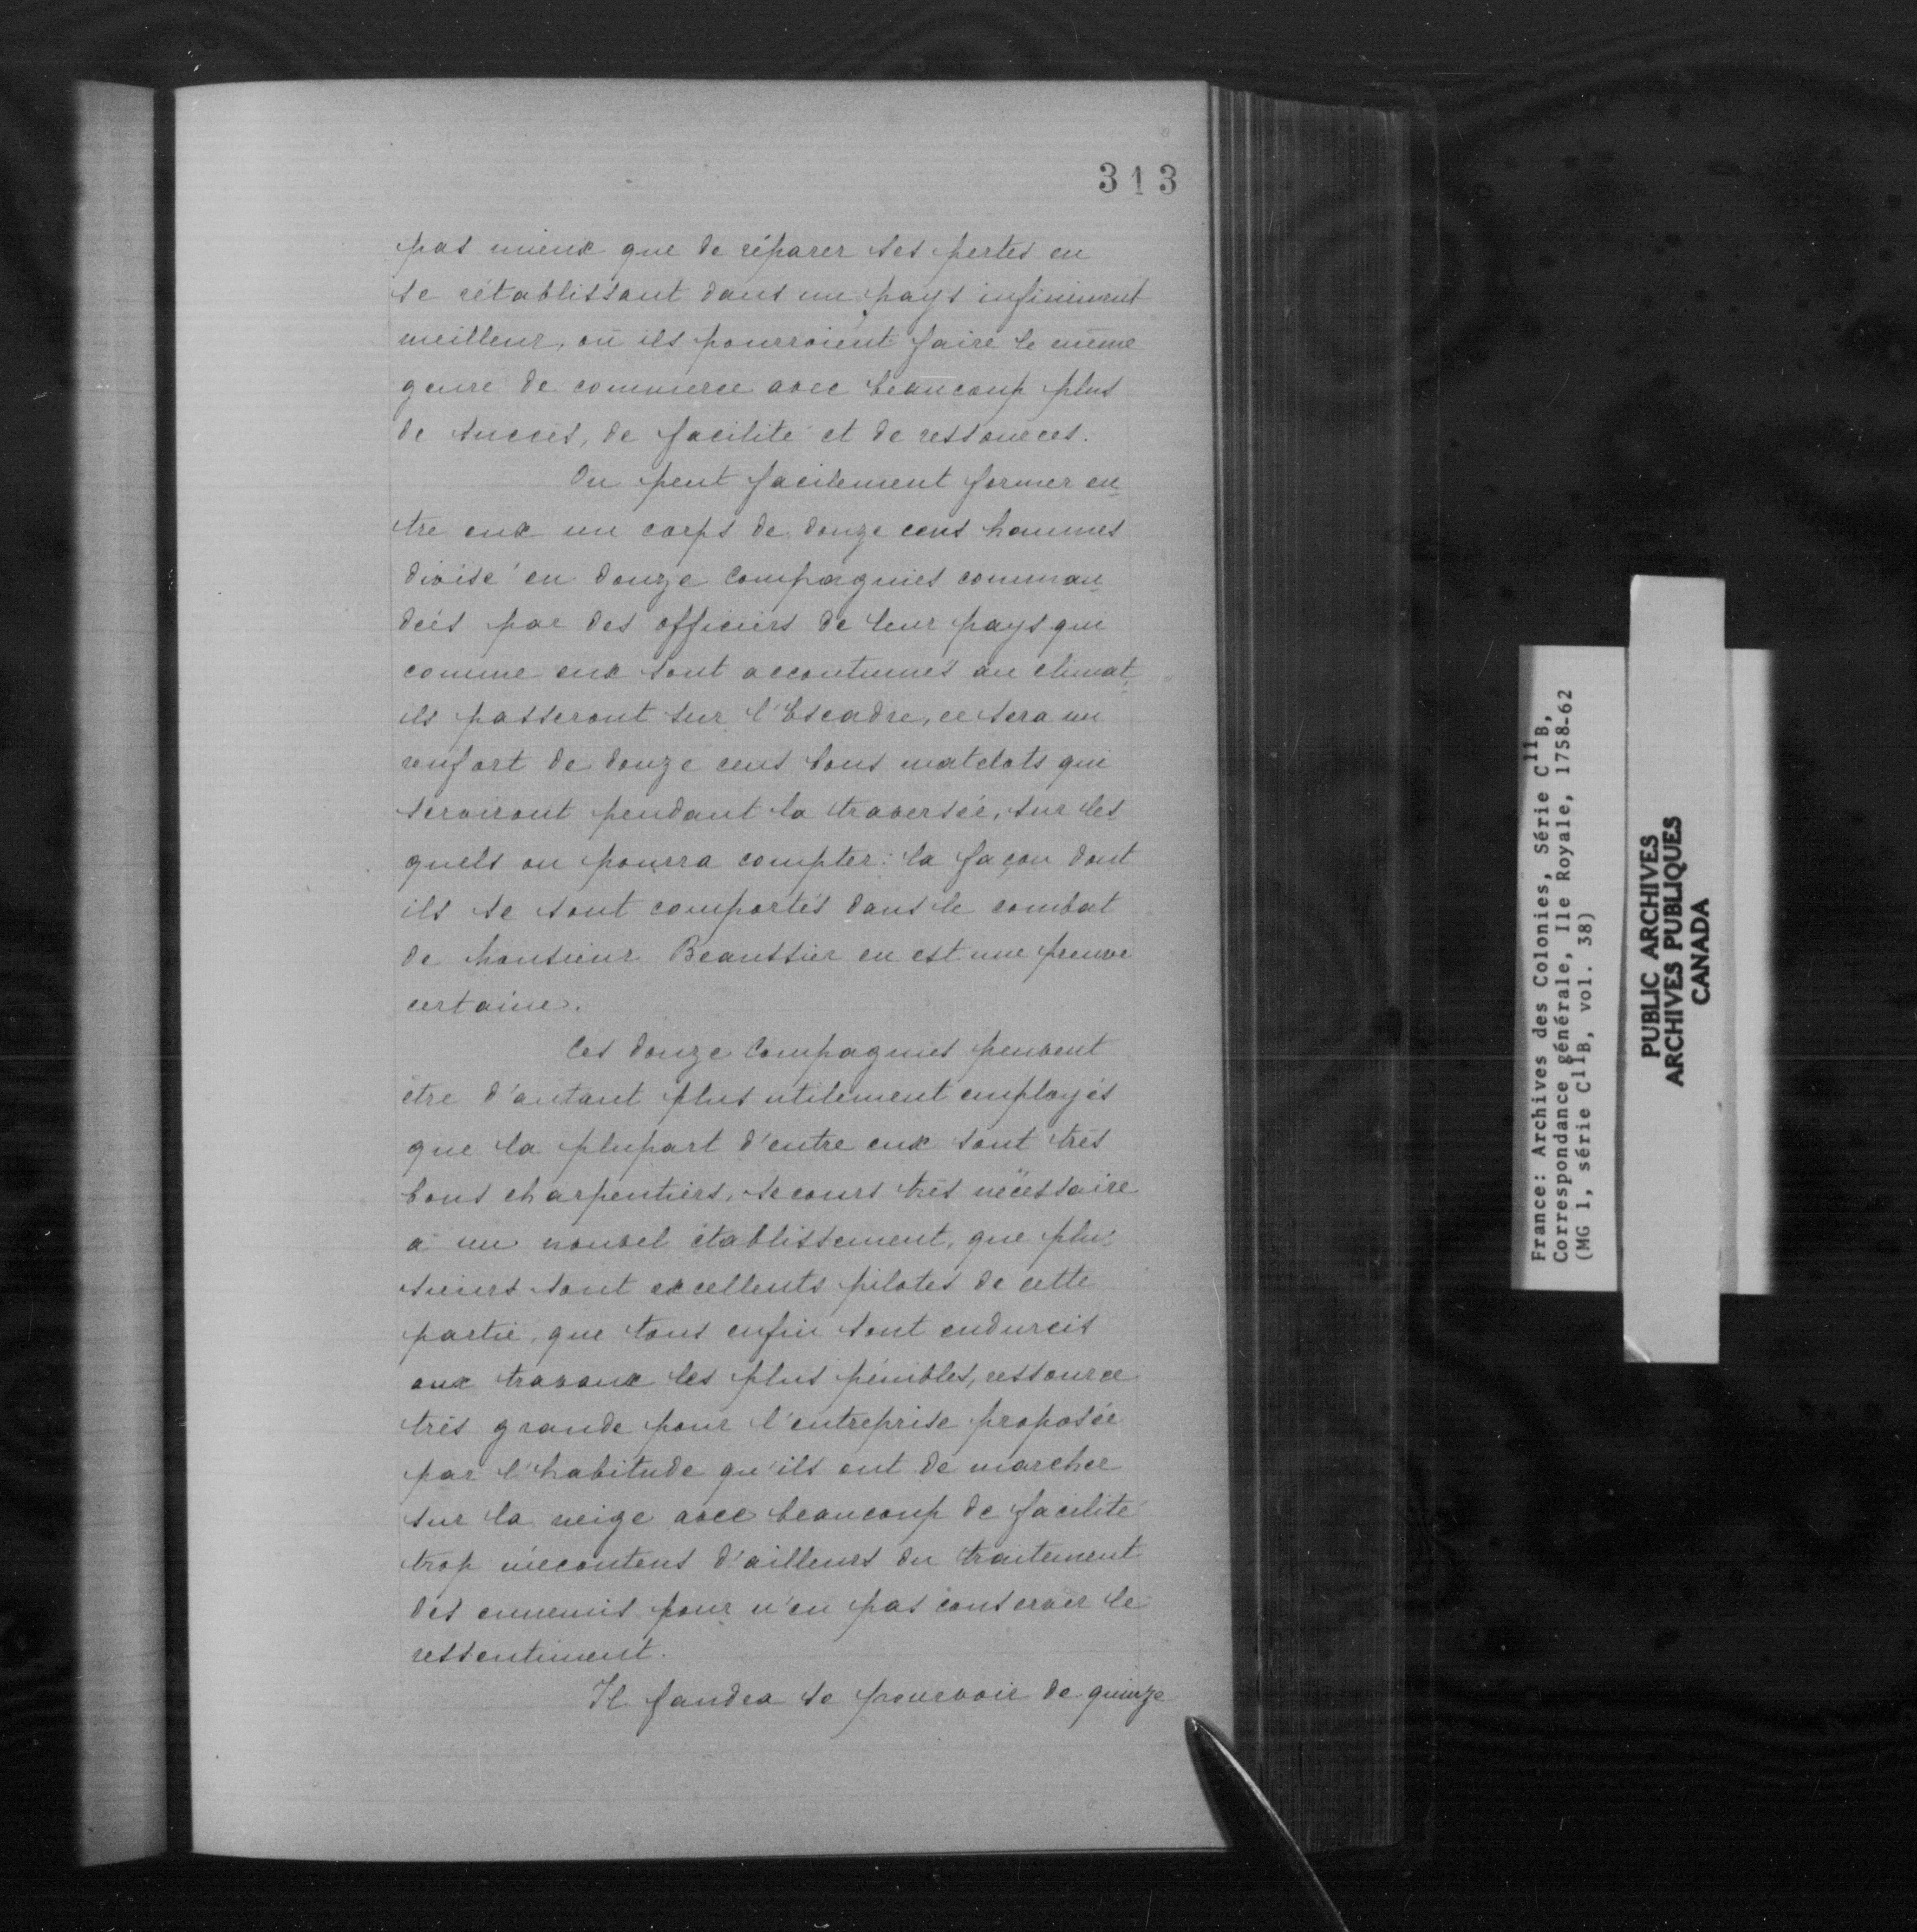 313
pas mieux que de réparer ses pertes en
se rétablissant dans un pays infiniment
meilleur, où ils pourroient faire le même
genre de commerce avec beaucoup plus
de succès, de facilité et de ressources.
On peut facilement former en-
tre eux un corps de douze cens hommes
divisé en douze Compagnies comman-
dées par des officiers de leur pays qui
comme eux sont accoutumés au climat,
ils passeront sur l'Escadre, ce sera un
renfort de douze cens bons matelots qui
serviront pendant la traversée, sur les
quels on pourra compter: la façon dont
ils se sont comportés dans le combat
de Monsieur Beaussier en est une preuve
certaine.
Ces douze Compagnies peuvent
être d'autant plus utilement employés
que la plupart d'entre eux sont très
bons charpentiers, secours très nécessaire
à un nouvel établissement, que plu-
sieurs sont excellents pilotes de cette
partie, que tous enfin sont endurcis
aux travaux les plus pénibles, ressource
très grande pour l'entreprise proposée
par l'habitude qu'ils ont de marcher
sur la neige avec beaucoup de facilité
trop mécontens d'ailleurs du traitement
des ennemis pour n'en pas conserver le
ressentiment.
Il faudra se pourvoir de quinze
France: Archives des Colonies, Série C11B,
Correspondance générale, Ile Royale, 1758-62
(MG 1, série C11B, vol. 38)
PUBLIC ARCHIVES
ARCHIVES PUBLIQUES
CANADA